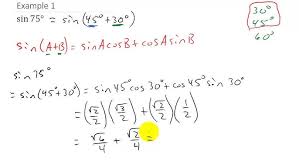 Example 1
sin 75° = sin(45° + 30°)
30°
45°
60°
sin(A+B) = sinAcosB + cosAsinB
sin 75°
= sin(45° + 30°) = sin 45° cos 30° + cos 45° sin 30°
= (√2/2)(√3/2) + (√2/2)(1/2)
= √6/4 + √2/4 =